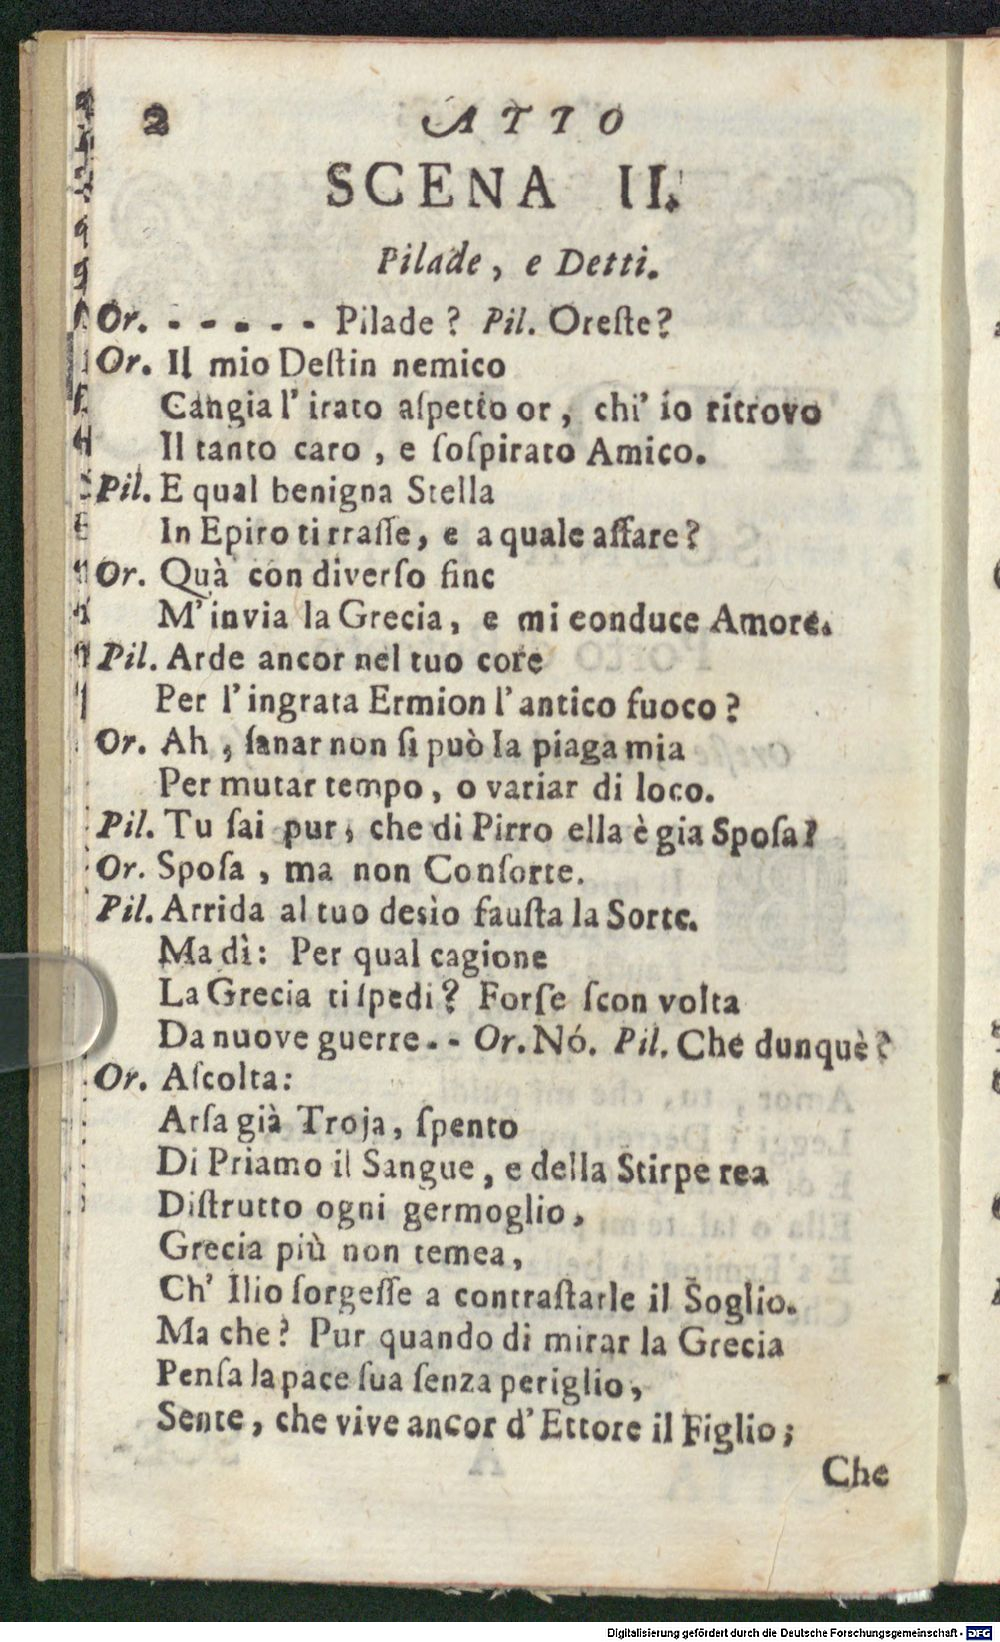 2 ATTO
SCENA II.
Pilade, e Detti.
Or. - - - - - Pilade? Pil. Oreſte?
Or. Il mio Deſtin nemico
Cangia l' irato aſpetto or, chi' io ritrovo
Il tanto caro, e ſoſpirato Amico.
Pil. E qual benigna Stella
In Epiro ti traſſe, e a quale affare?
Or. Quà con diverſo fine
M' invia la Grecia, e mi conduce Amore.
Pil. Arde ancor nel tuo core
Per l' ingrata Ermion l' antico fuoco?
Or. Ah, ſanar non ſi può la piaga mia
Per mutar tempo, o variar di loco.
Pil. Tu ſai pur, che di Pirro ella è gia Spoſa?
Or. Spoſa, ma non Conſorte.
Pil. Arrida al tuo desìo fauſta la Sorte.
Ma dì: Per qual cagione
La Grecia ti ſpedi? Forſe ſcon volta
Da nuove guerre. - Or. Nó. Pil. Che dunquè?
Or. Aſcolta:
Arſa già Troja, ſpento
Di Priamo il Sangue, e della Stirpe rea
Diſtrutto ogni germoglio,
Grecia più non temea,
Ch' Ilio ſorgeſſe a contraſtarle il Soglio.
Ma che? Pur quando di mirar la Grecia
Penſa la pace ſua ſenza periglio,
Sente, che vive ancor d' Ettore il Figlio;
Che
Digitalisierung gefördert durch die Deutsche Forschungsgemeinschaft - DFG